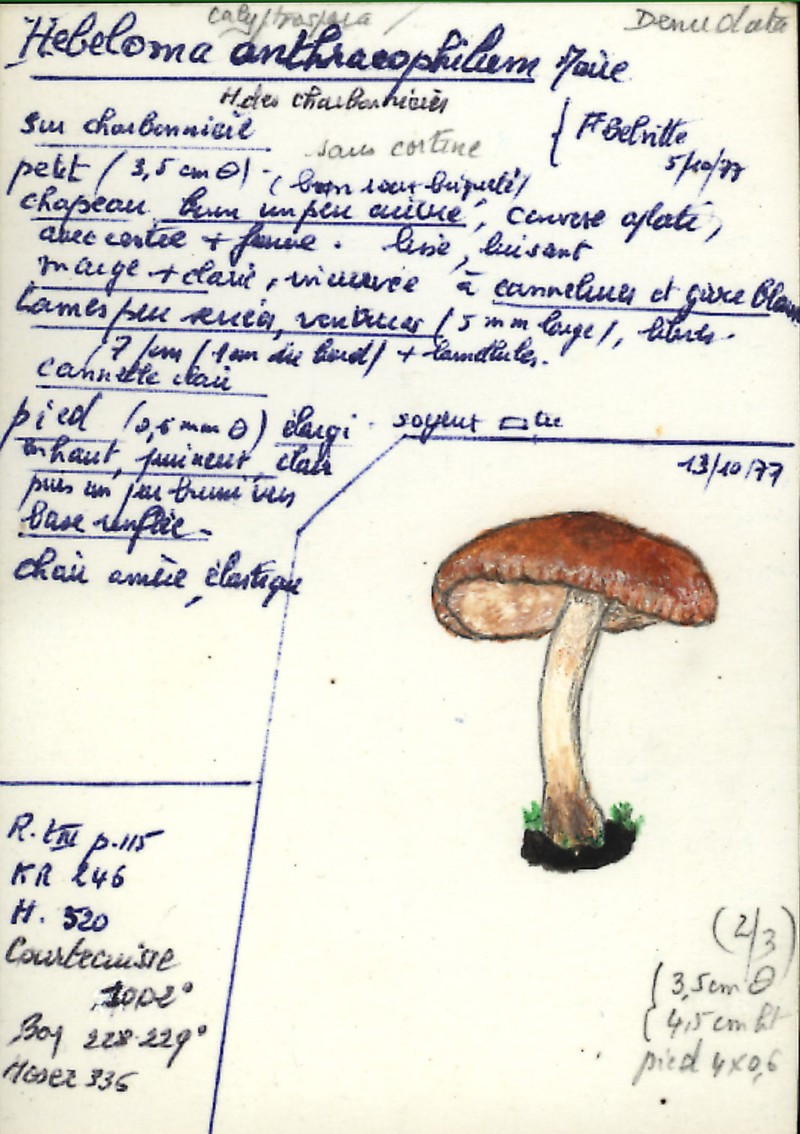 calyptrospora / Denudata
Hebeloma anthracophilum Maire
H. des charbonnières
sur charbonnière
sans cortine
Ft Selvitte
5/10/77
petit (3,5 cm Θ) -
(brun roux briqueté)
chapeau brun un peu cuivré, convexe aplati,
avec centre + foncé. lisse, luisant
marge + claire, incurvée à cannelures et givre blanc
Lames peu serrées, ventrues (5 mm large), libres.
7/cm (1 cm du bord) + lamellules.
cannelle clair
pied (0,6 mm Θ) élargi
soyeux
en haut, pruineux, clair
puis un peu bruni vers
base renflée -
chair amère, élastique
13/10/77
R. tIII p.115
KR 246
H. 520
Courtecuisse
1002°
Bon 228-229°
Moser 336
(2/3)
3,5 cm Θ
4,5 cm ht
pied 4x0,6